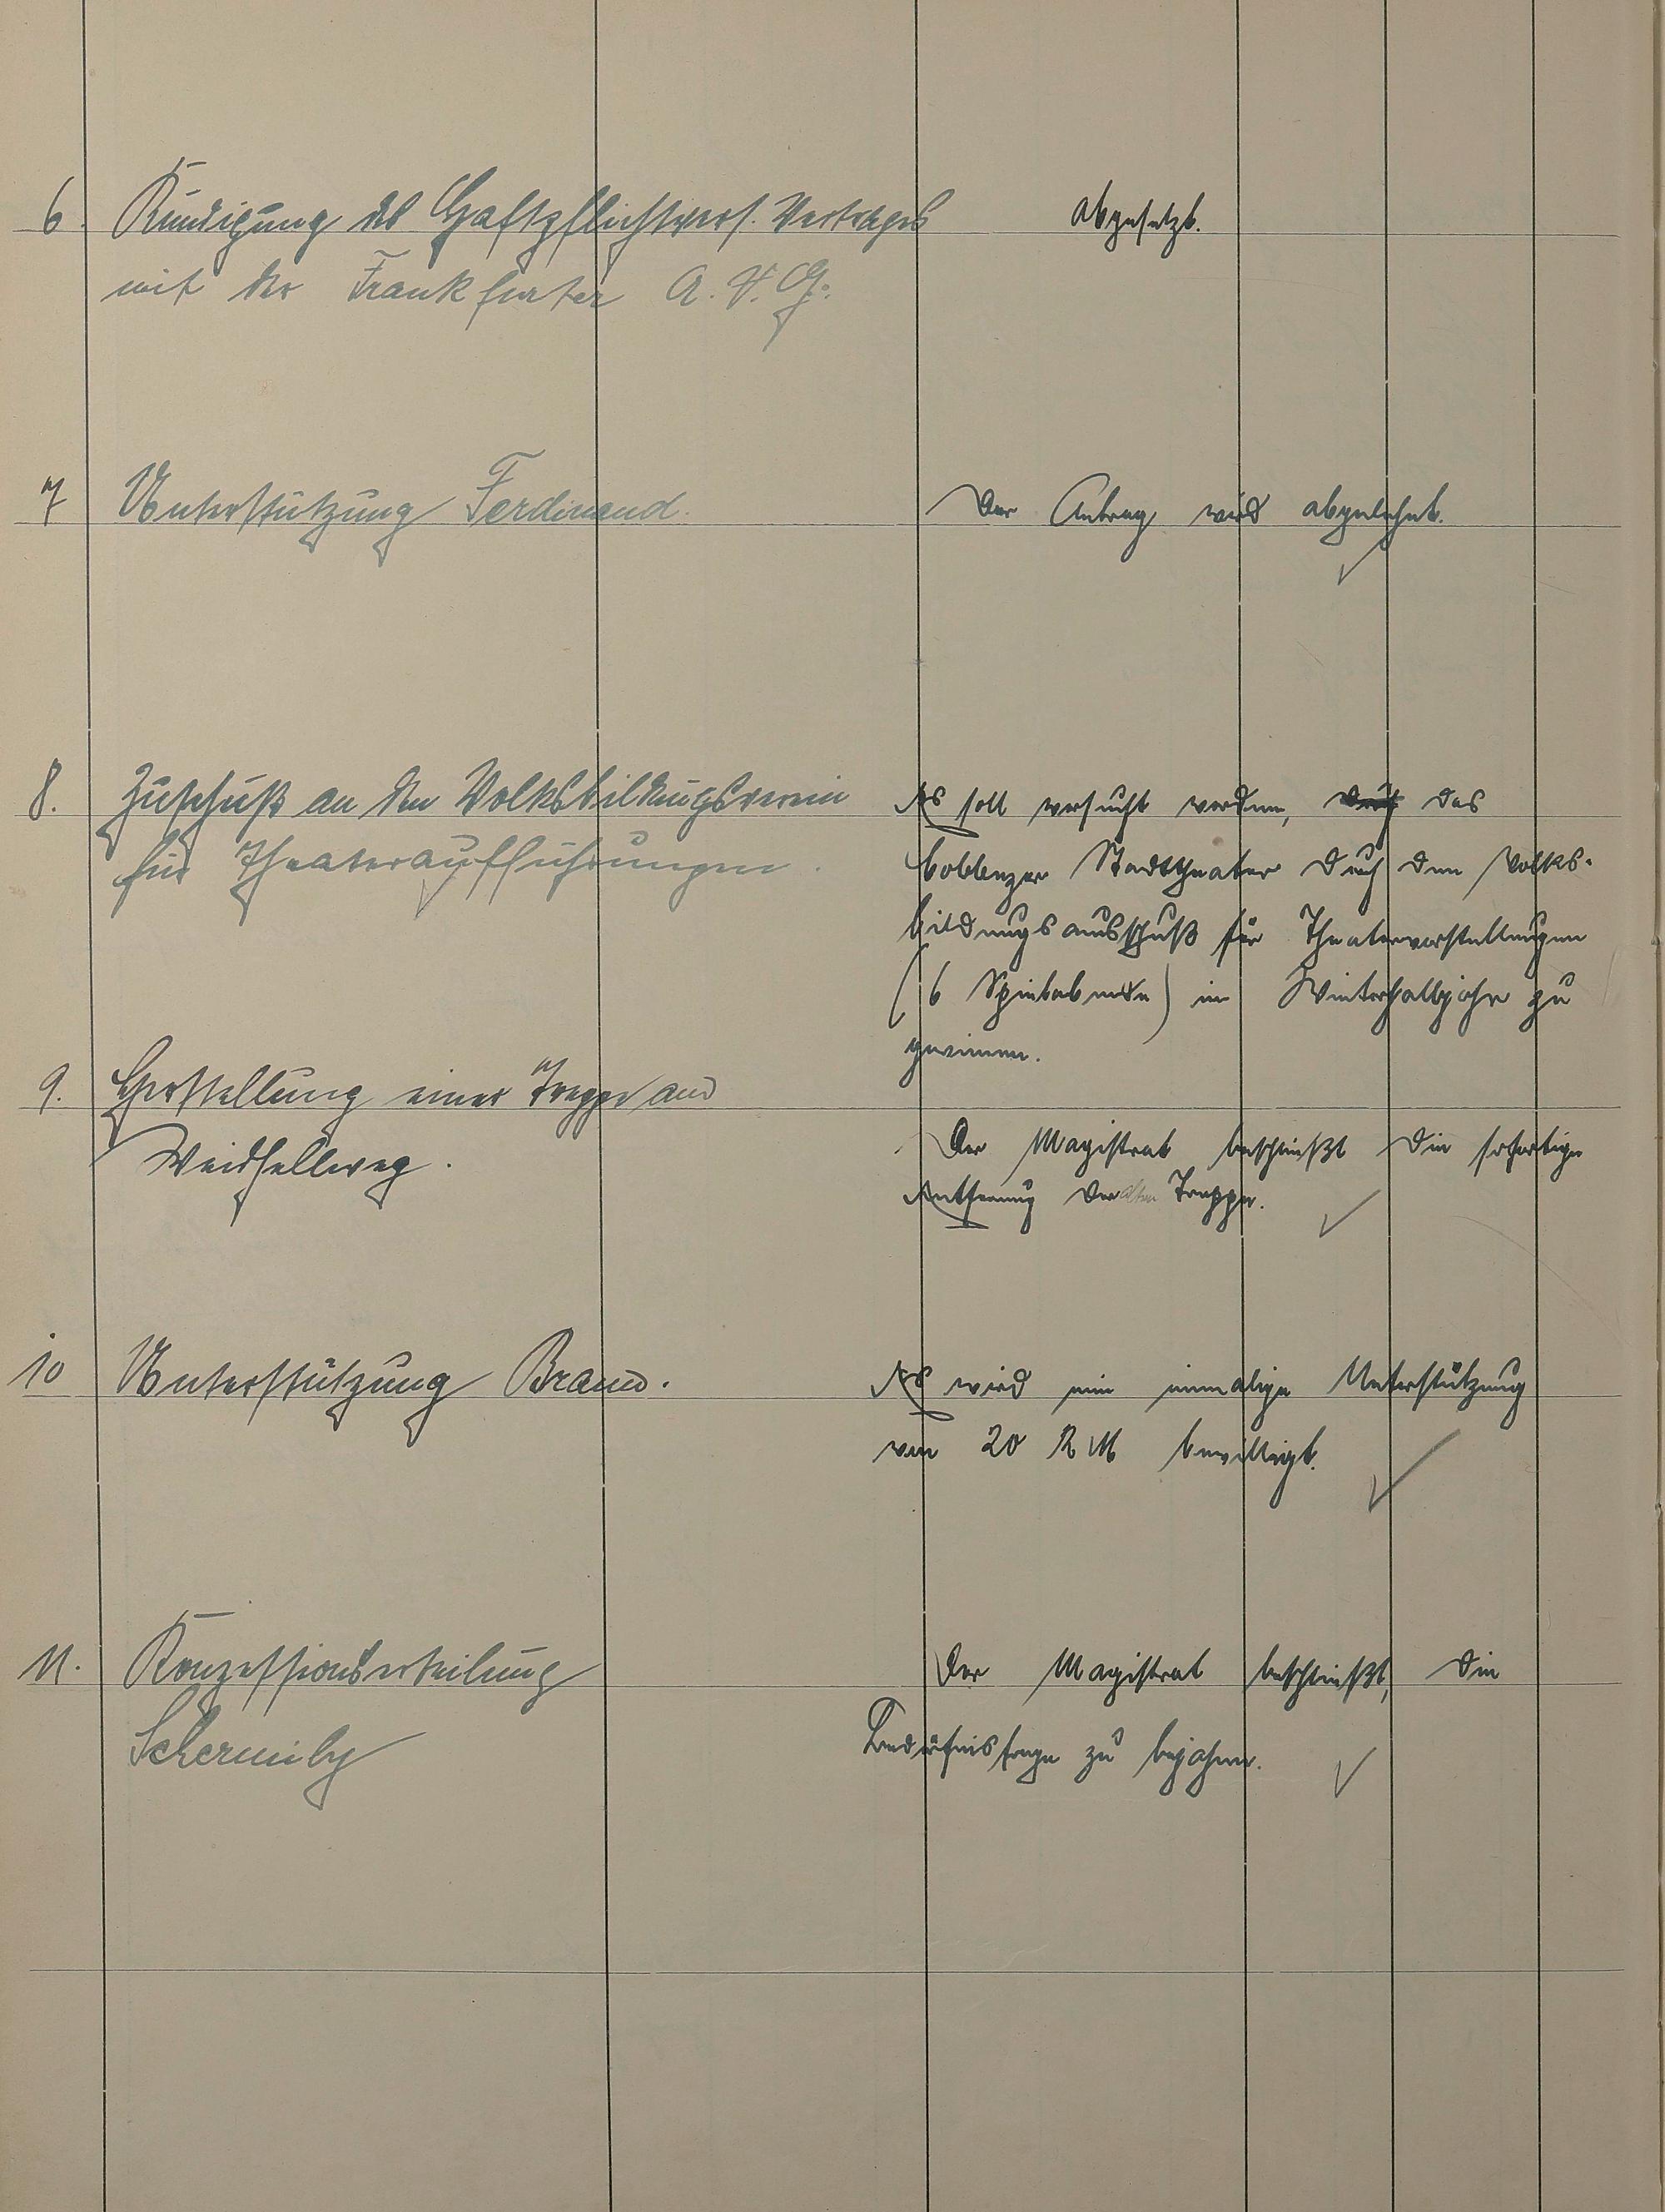 6. Kündigung des Haftpflichtvers. Vertrages
mit der Frankfurter A. V. G.
abgesetzt.
7 Unterstützung Ferdinand.
Der Antrag wird abgelehnt.
8. Zuschuß an den Volksbildungsverein
für Theateraufführungen.
Es soll versucht werden, durch das
Coblenzer Stadttheater durch den Volks-
bildungsausschuß für Theatervorstellungen
(6 Spielabende) im Winterhalbjahr zu
gewinnen.
9. Herstellung einer Treppe am
Weidhellweg.
Der Magistrat beschließt die sofortige
Entfernung der alten Treppe.
10 Unterstützung Braun.
Es wird eine einmalige Unterstützung
von 20 RM bewilligt.
11. Konzessionserteilung
Schermily
Der Magistrat beschließt, die
Bedürfnisfrage zu bejahen.